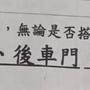 ，無論是否搭
、後車門